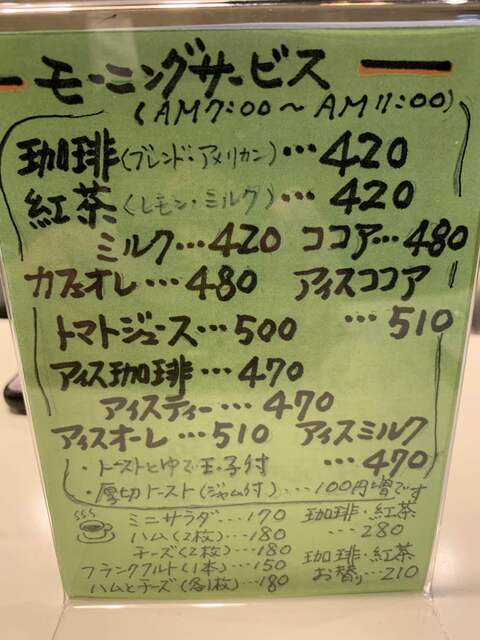 モーニングサービス
(AM7:00～AM11:00)
珈琲(ブレンド・アメリカン)…420
紅茶(レモン・ミルク)…420
ミルク…420 ココア…480
カフェオレ…480 アイスココア
トマトジュース…500 …510
アイス珈琲…470
アイスティー…470
アイスオーレ…510 アイスミルク
・トーストとゆで玉子付 …470
・厚切トースト(ジャム付)…100円増です
ミニサラダ…170 珈琲・紅茶
ハム(2枚)…180 …280
チーズ(2枚)…180 珈琲・紅茶
フランクフルト(1本)…150 お替り…210
ハムとチーズ(各1枚)…180